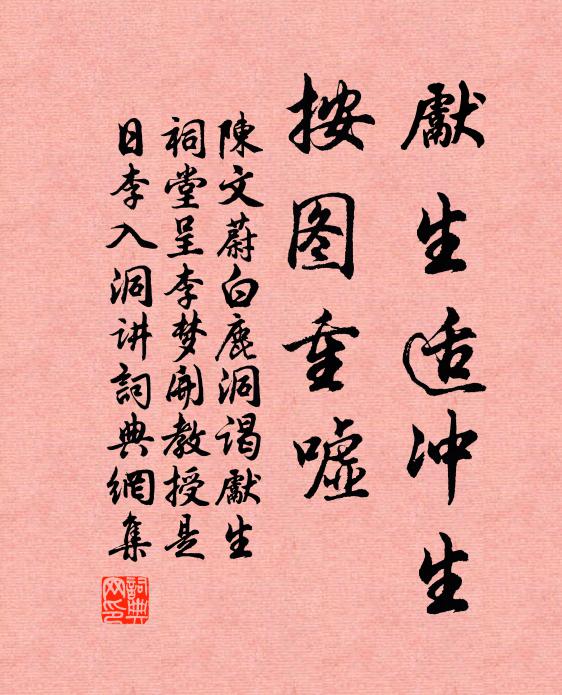 獻生适冲生
按图重嘘
陳文蔚白鹿洞谒獻生
祠堂呈李梦開教授是
日李入洞讲詞典網集
詞典网印